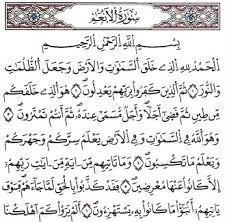 سورة الأنعم
بسم الله الرحمن الرحيم
الحمد لله الذي خلق السموت والأرض وجعل الظلمت
والنور ثم الذين كفروا بربهم يعدلون ١ هو الذي خلقكم
من طين ثم قضى أجلا وأجل مسمى عنده ثم أنتم تمترون ٢
وهو الله في السموت وفي الأرض يعلم سركم وجهركم
ويعلم ما تكسبون ٣ وما تأتيهم من ءاية من ءايت ربهم
إلا كانوا عنها معرضين ٤ فقد كذبوا بالحق لما جاءهم فسوف
يأتيهم أنبؤا ما كانوا به يستهزءون ٥ ألم يروا كم أهلكنا